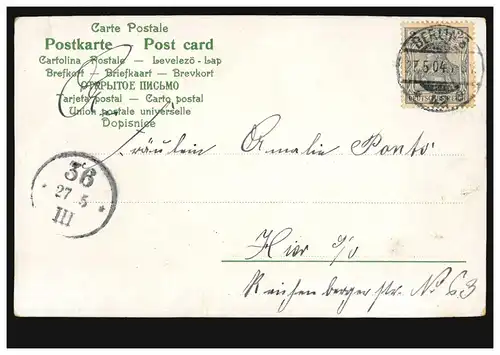 Carte Postale
Postkarte Post card
Cartolina Postale – Levelező-Lap
Brefkort – Briefkaart – Brevkort
ОТКРЫТОЕ ПИСЬМО
Tarjeta postal – Carto postal
Union postale universelle
Dopisnice
BERLIN
27.5.04
36
27 5
III
Fräulein Amalie
Hier S/O
Reichenbergerstr. No 63